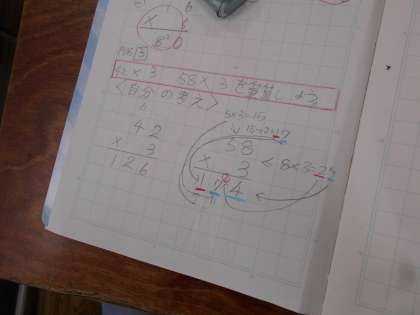 6
×
0
P.85 3
42×3 58×3を計算しよう。
<自分の考え>
42
× 3
126
5×3=15
15+2=17
58
× 3
174
< 8×3=24